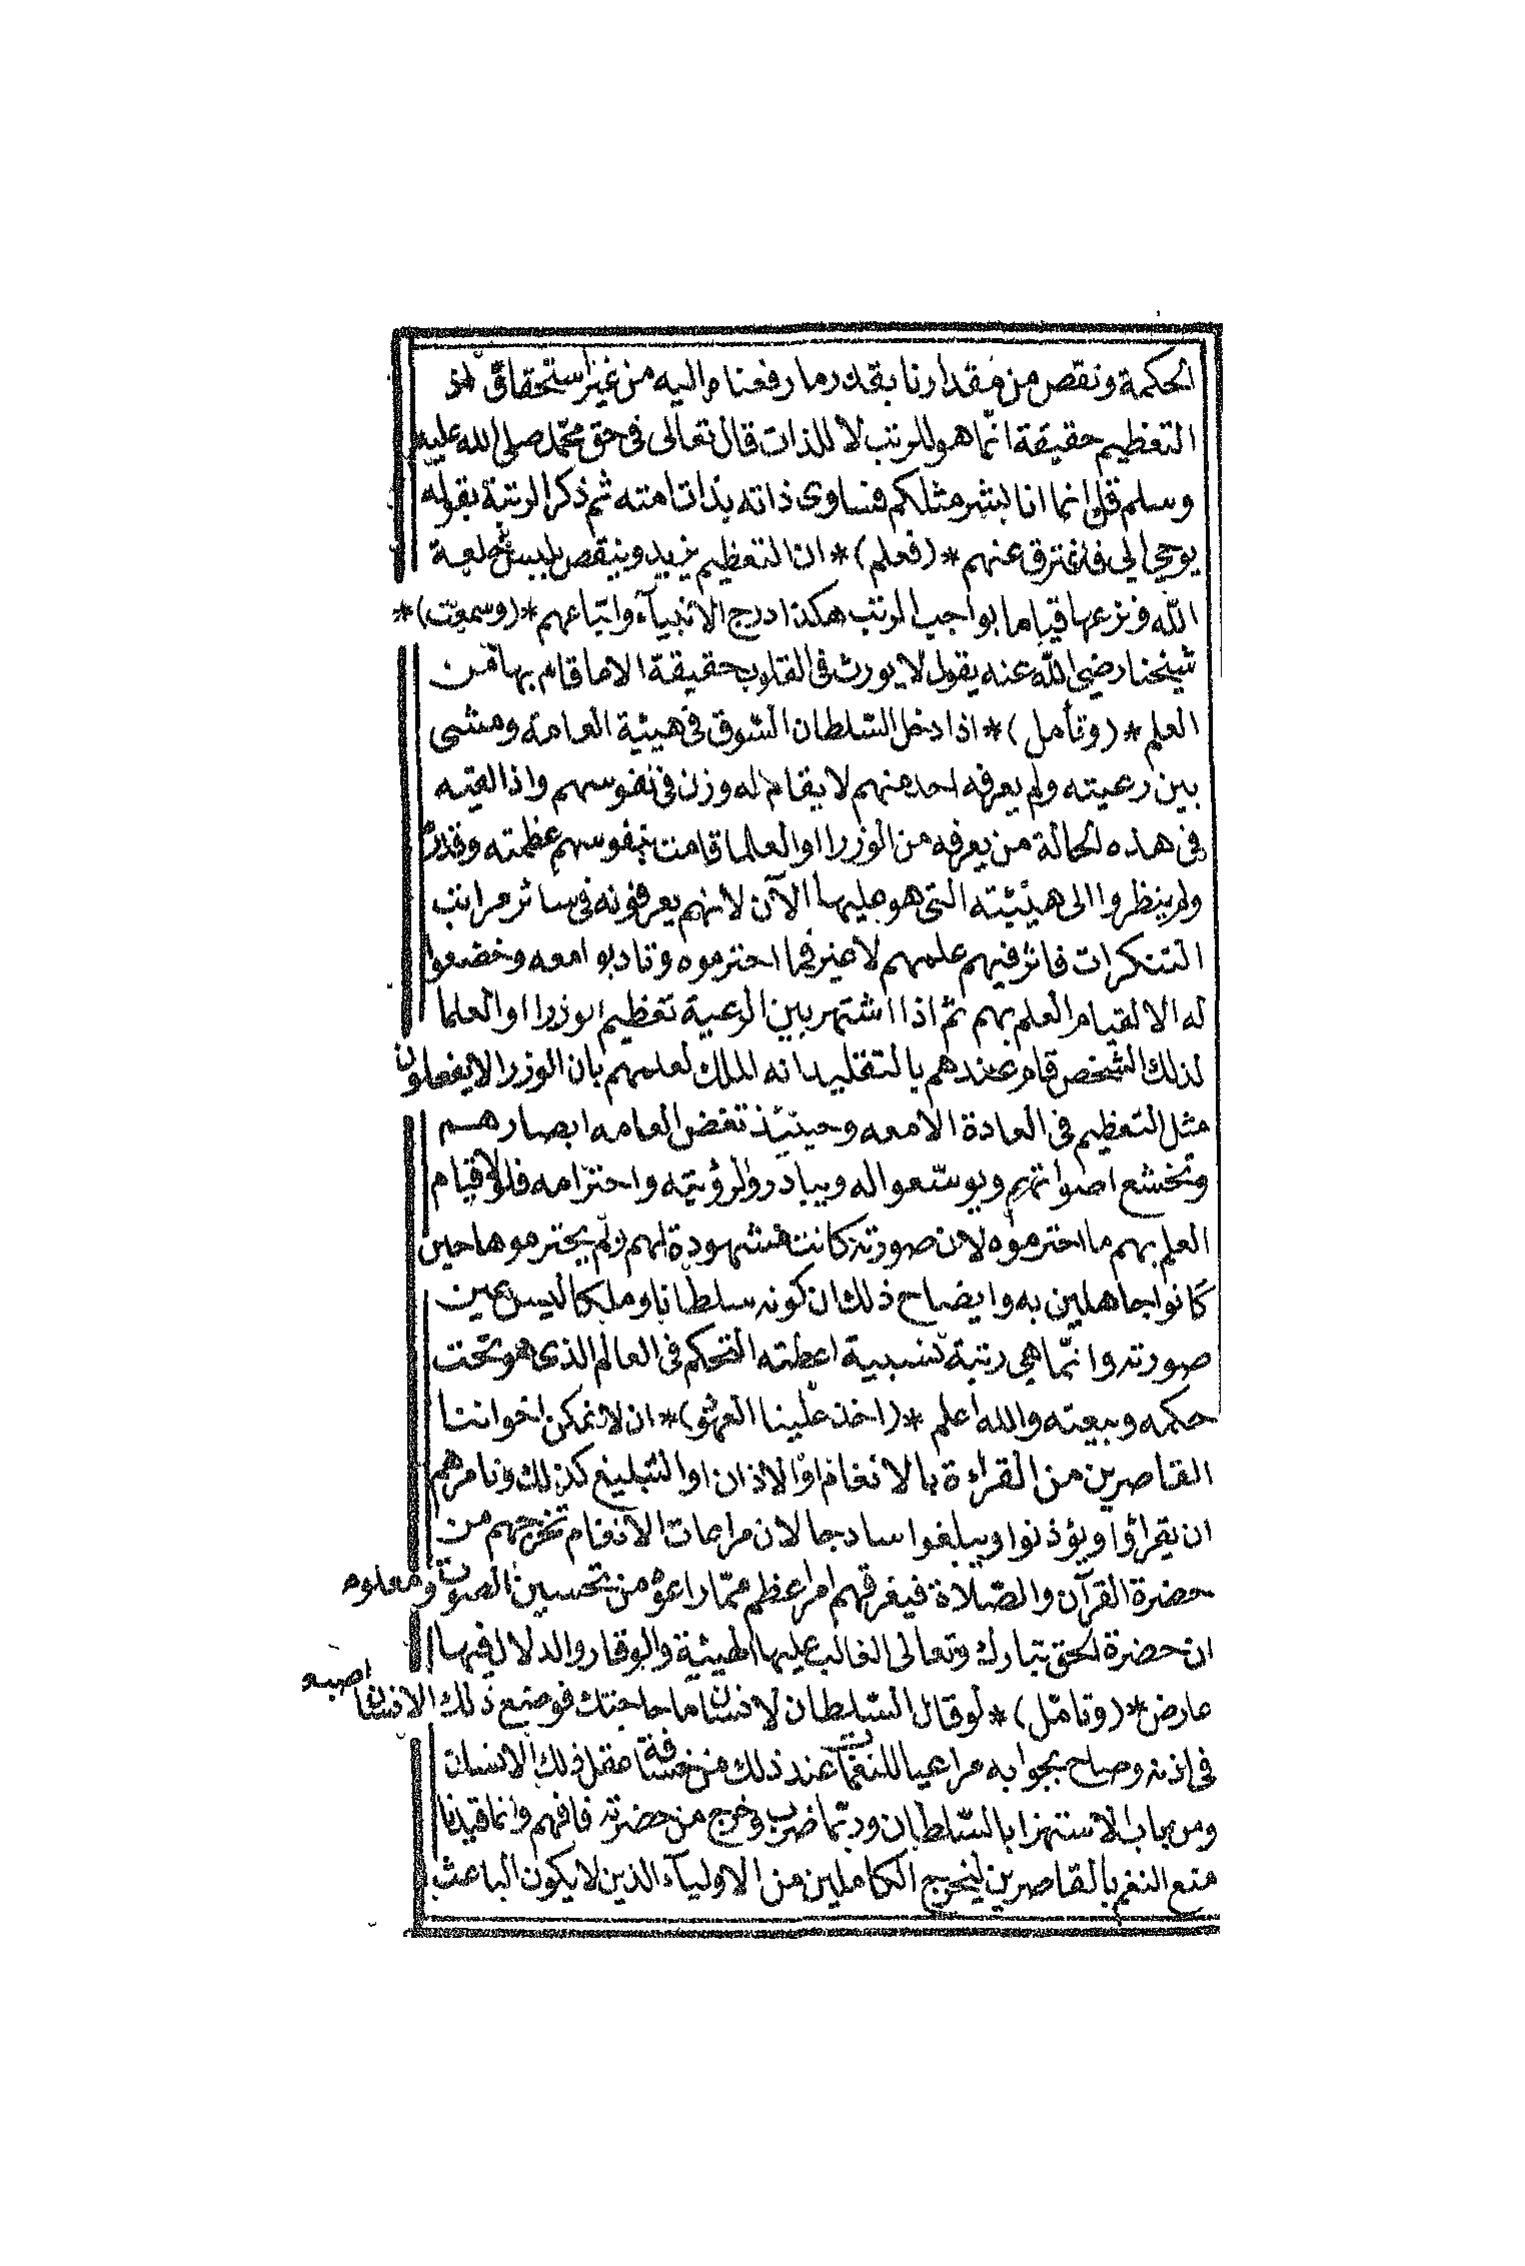 الحكمة ونقص من مقدارنا بقدر ما رفعناه اليه من غير استحقاق اذ
التعظيم حقيقة انّما هو للرتب لا للذات قال تعالى فى حق محمّد صلى الله عليه
وسلم قل انما انا بشر مثلكم فساوى ذاته بذات امته ثم ذكر الرتبة بقوله
يوحى الي فافترق عنهم * (فعلم) * ان التعظيم يزيد وينقص بلبس خلعة
الله ونزعها قياما بواجب الرتب هكذا درج الانبيآء واتباعهم * (وسمعت) *
شيخنا رضي الله عنه يقول لا يورث فى القلوب حقيقة الا ما قام بها من
العلم * (وتأمل) * اذا دخل السّلطان السّوق فى هيئة العامة ومشى
بين رعيته ولم يعرفه احد منهم لا يقام له وزن فى نفوسهم واذا لقيه
فى هذه الحالة من يعرفه من الوزرا او العلما قامت بنفوسهم عظمته وقدره
ولم ينظروا الى هيئته التى هو عليها الآن لانهم يعرفونه فى سائر مراتب
التنكرات فاثر فيهم علمهم لا غير فما احترموه وتادبوا معه وخضعوا
له الا لقيام العلم بهم ثم اذا اشتهر بين الرعية تعظيم الوزرا او العلما
لذلك الشخص قام عندهم بالتقليد انه الملك لعلمهم بان الوزرا لا يفعلون
مثل التعظيم فى العادة الا معه وحينئذ تغض العامه ابصارهم
وتخشع اصواتهم ويوسّعوا له ويبادروا لرؤيته واحترامه فلولا قيام
العلم بهم ما احترموه لان صورته كانت مشهودة لهم ولم يحترموها حين
كانوا جاهلين به وايضاح ذلك ان كونه سلطانا وملكا ليس عين
صورته وانّما هي رتبة نسبية اعطته التحكم فى العالم الذى هو تحت
حكمه وبيعته والله اعلم * (اخذ علينا العهود) * ان لا نمكن اخواننا
القاصرين من القراءة بالانغام او الاذان او التبليغ كذلك ونامرهم
ان يقراؤا ويؤذنوا ويبلغوا سادجا لان مراعات الانغام تخرجهم من
حضرة القرآن والصّلاة فيفرقهم امر اعظم ممّا راعوه من تحسين الصوت ومعلوم
ان حضرة الحق تبارك وتعالى الغالب عليها الهيبة والوقار والدلال فيها
عارض * (وتامّل) * لو قال السّلطان لانسان ما حاجتك فوضع ذلك الانسان اصبعه
فى اذنه وصاح بجوابه مراعيا للنغمات عند ذلك من خسافة عقل ذلك الانسان
ومن باب الاستهزا بالسّلطان وربّما ضرب وخرج من حضرته فافهم وانما قيدنا
منع النغم بالقاصرين ليخرج الكاملين من الاوليآء الذين لا يكون الباعث